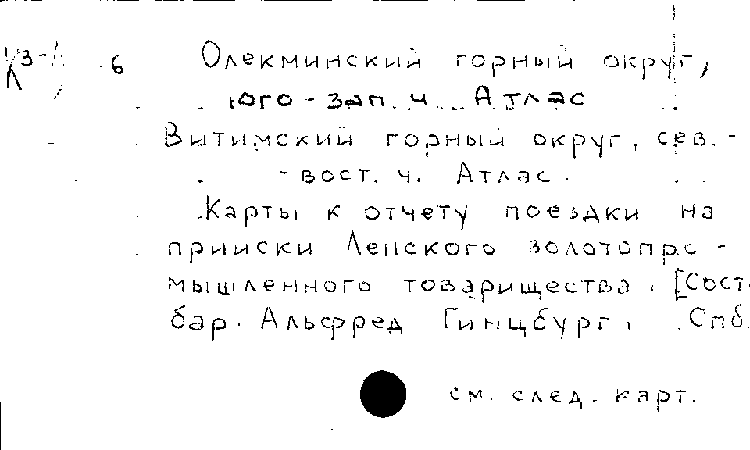 6 Олекминский горный округ,
юго-зап. ч. Атлас
Витимский горный округ, сев.-
-вост. ч. Атлас.
Карты к отчету поездки на
прииски Ленского золотопро-
мышленного товарищества. [Сост.
бар. Альфред Гинцбург. Спб.
см. след. карт.